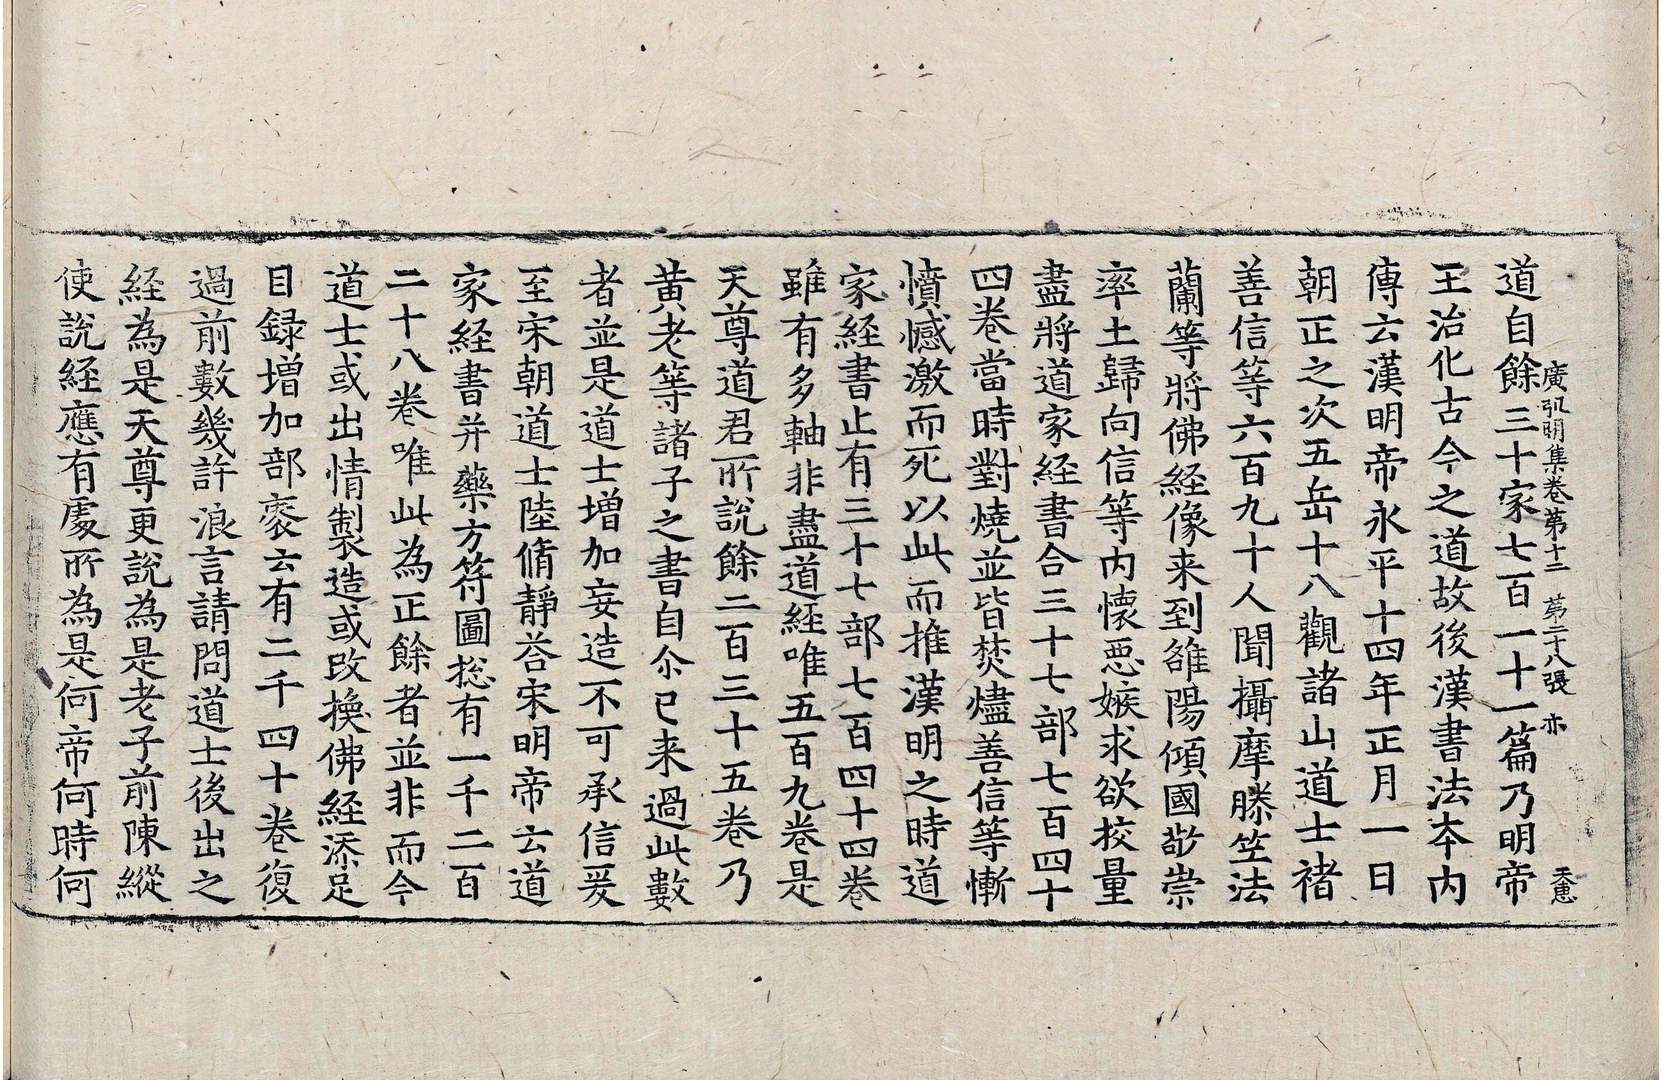 廣弘明集卷第十二　第二十八張　亦
天惠
道自餘三十家七百一十一篇乃明帝
王治化古今之道故後漢書法夲內
傳云漢明帝永平十四年正月一日
朝正之次五岳十八觀諸山道士褚
善信等六百九十人聞攝摩滕竺法
蘭等將佛経像来到雒陽傾國敬崇
率土歸向信等內懷惡嫉求欲挍量
盡將道家経書合三十七部七百四十
四卷當時對燒並皆焚燼善信等慚
憤憾激而死以此而推漢明之時道
家経書止有三十七部七百四十四卷
雖有多軸非盡道経唯五百九卷是
天尊道君所說餘二百三十五卷乃
黃老等諸子之書自尒已来過此數
者並是道士增加妄造不可承信爰
至宋朝道士陸脩靜荅宋明帝云道
家経書并藥方符圖捴有一千二百
二十八卷唯此為正餘者並非而今
道士或出情製造或改換佛経添足
目録增加部袠云有二千四十卷復
過前數幾許浪言請問道士後出之
経為是天尊更說為是老子前陳縱
使說経應有處所為是何帝何時何